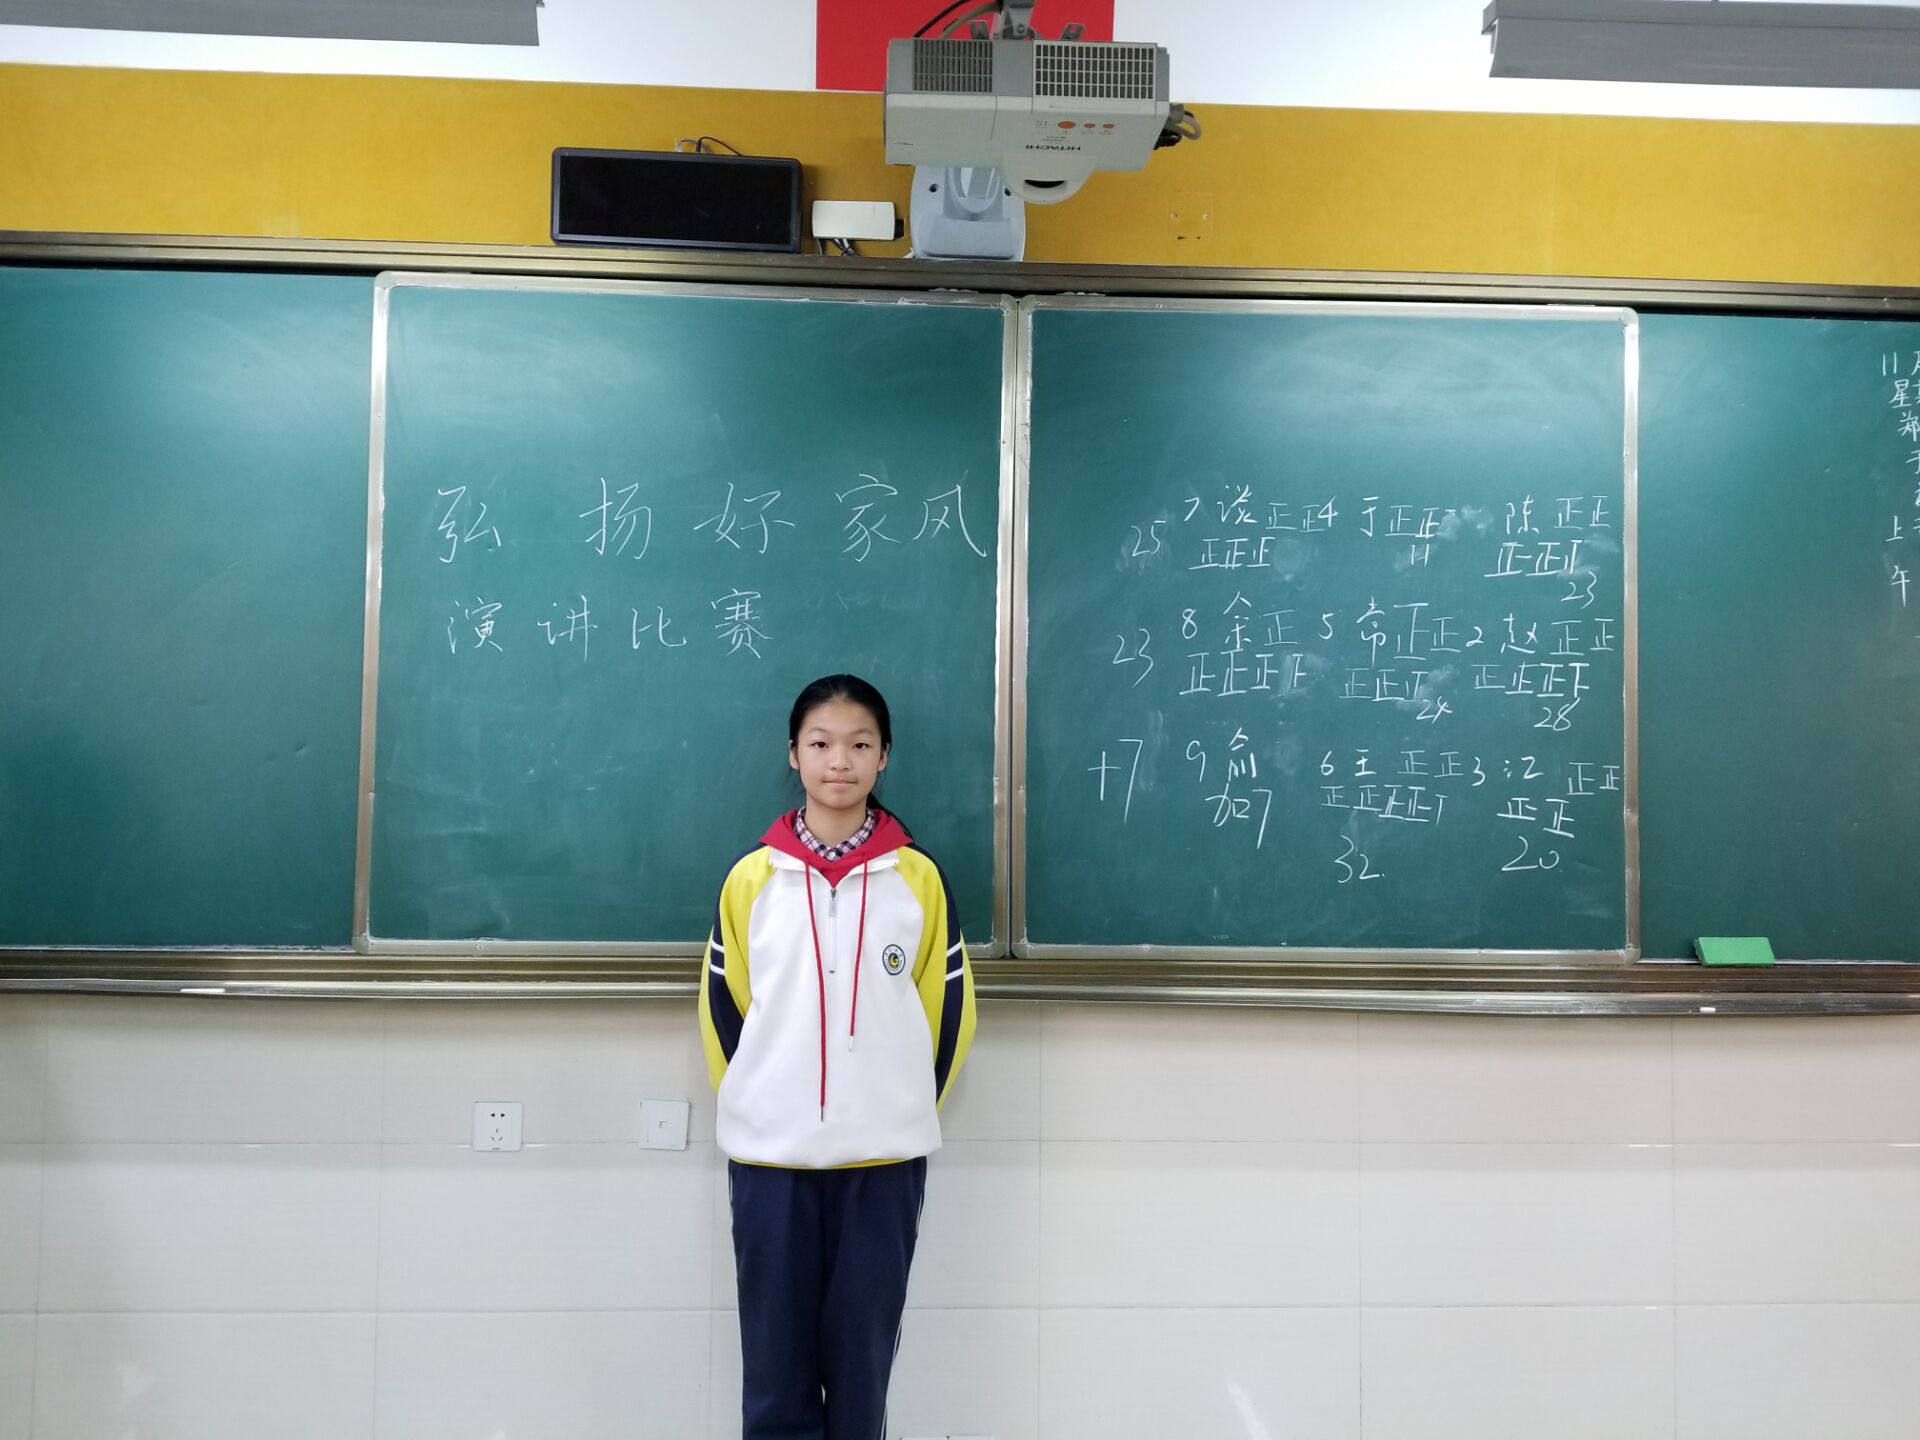 弘扬好家风
演讲比赛
25 7 谈 正正 4 于 正正一 陈 正正
正正正 11 正正下
23
23 8 余 正 5 常 正正 2 赵 正正
正正正下 正正 正正正下
24 28
+7 9 俞 6 王 正正 3 江 正正
加7 正正正正丅 正正
32. 20.
11
星
郑
上
午
HITACHI